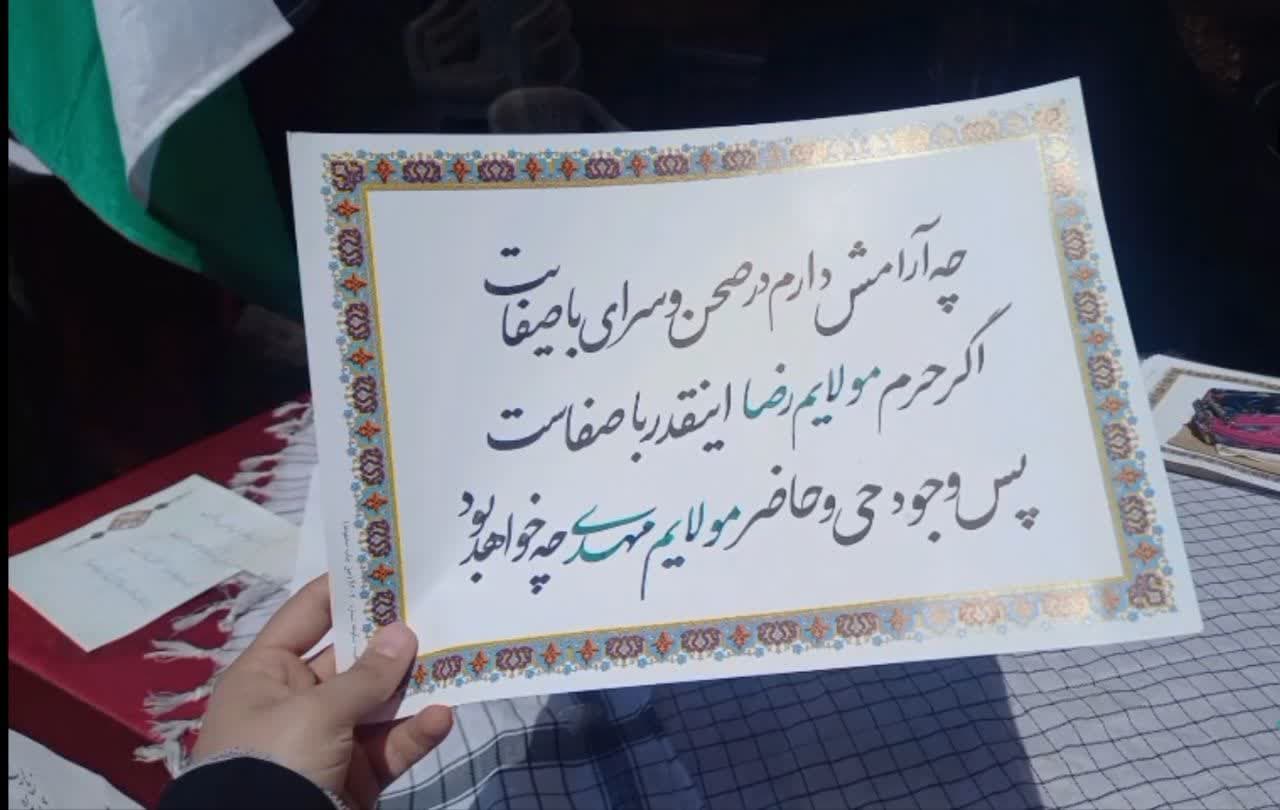 چه آرامش دارم در صحن و سرای با صفایت
اگر حرم مولایم رضا اینقدر با صفاست
پس وجود حی و حاضر مولایم مهدی چه خواهد بود